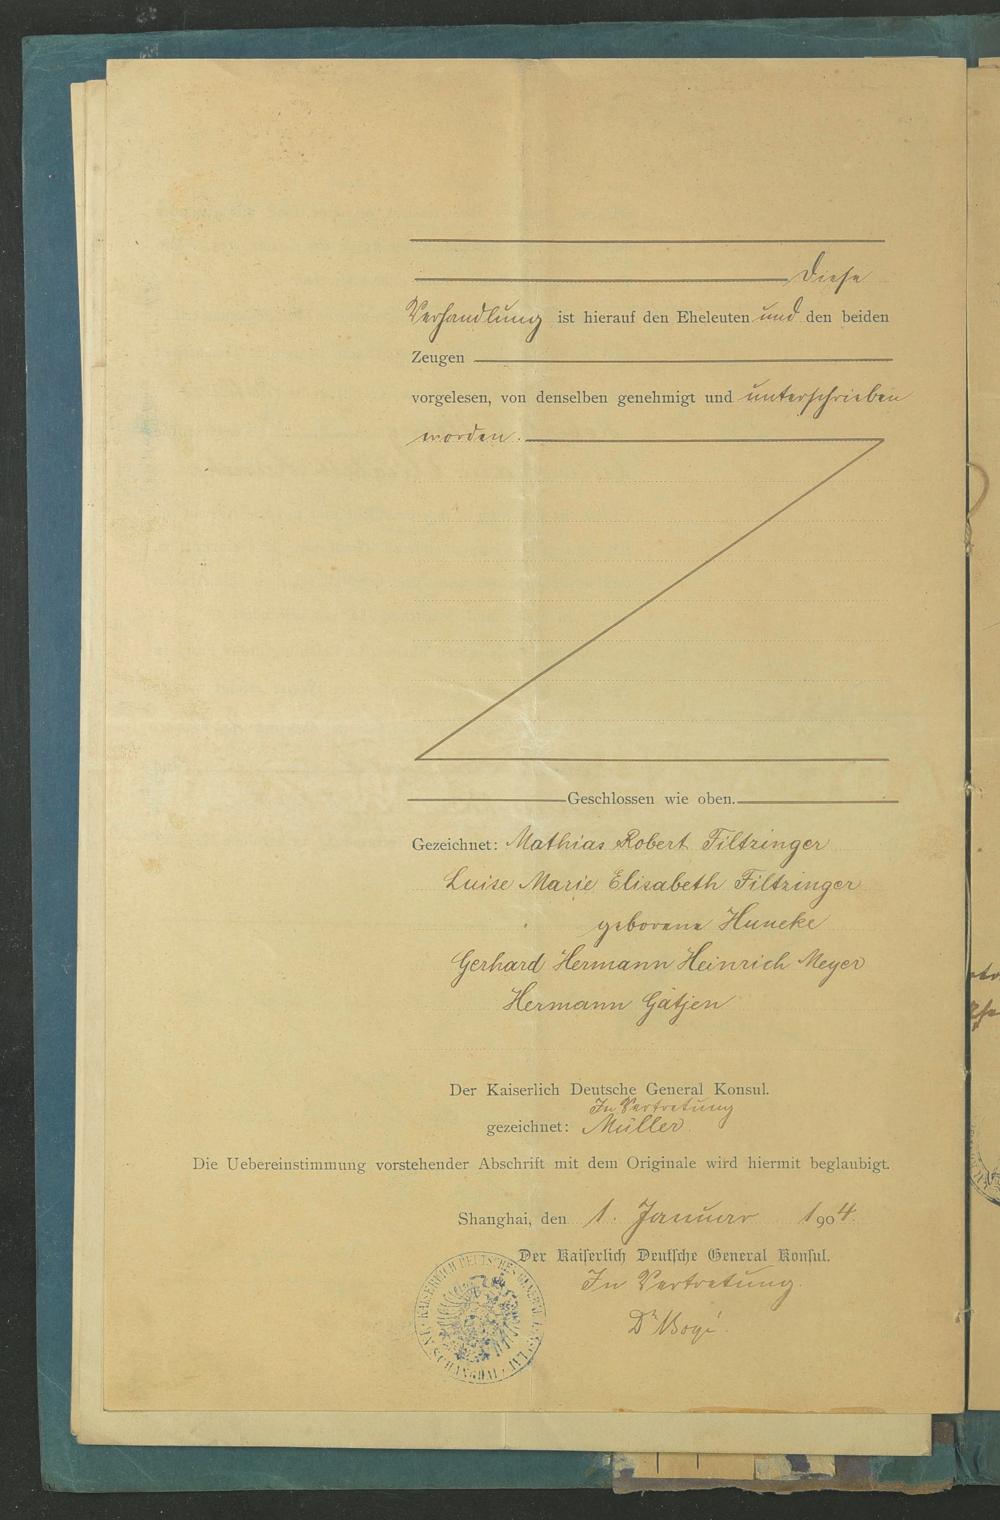 Diese
Verhandlung ist hierauf den Eheleuten und den beiden
Zeugen
vorgelesen, von denselben genehmigt und unterschrieben
worden.
Geschlossen wie oben.
Gezeichnet: Mathias Robert Filtzinger
Luise Marie Elisabeth Filtzinger
geborene Huneke
Gerhard Hermann Heinrich Meyer
Hermann Gätjen
Der Kaiserlich Deutsche General Konsul.
In Vertretung
gezeichnet: Müller.
Die Uebereinstimmung vorstehender Abschrift mit dem Originale wird hiermit beglaubigt.
Shanghai, den 1. Januar 1904.
Der Kaiserlich Deutsche General Konsul.
In Vertretung.
Dr
KAISERLICH DEUTSCHES GENERAL
SCHANGHAI